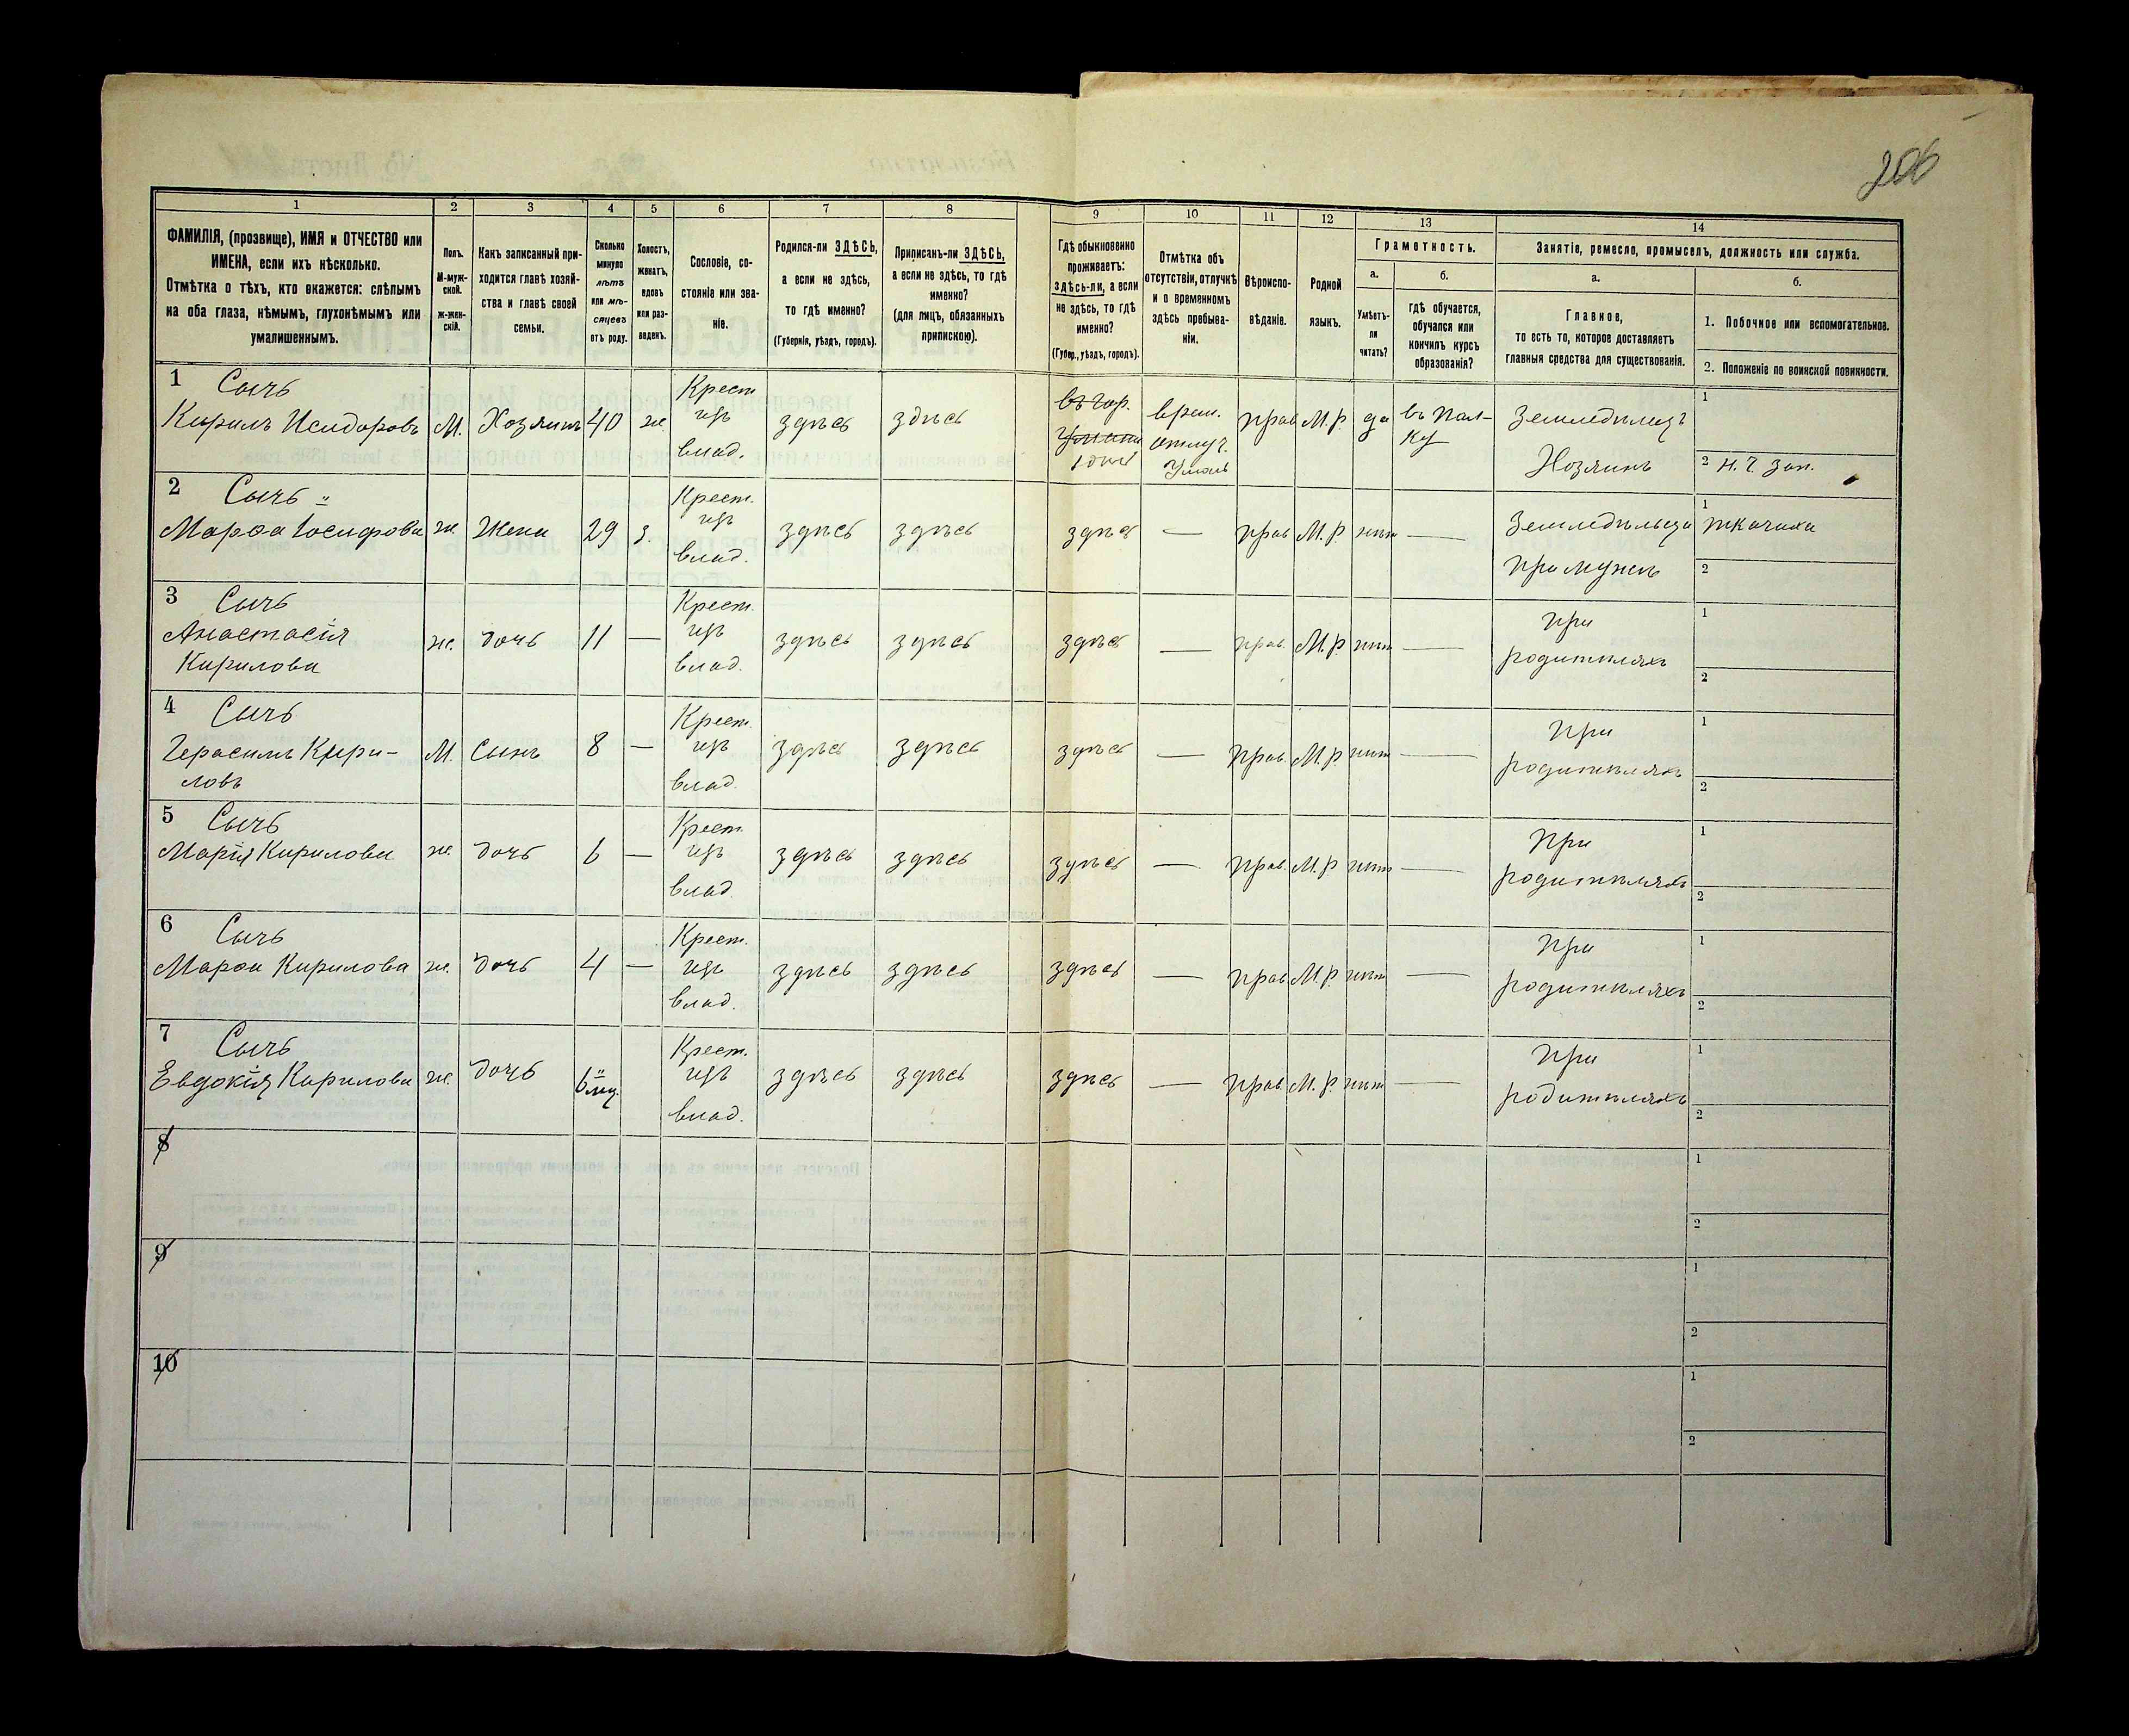 206
1 2 3 4 5 6 7 8 9 10 11 12 13 14
ФАМИЛІЯ, (прозвище), ИМЯ и ОТЧЕСТВО или
ИМЕНА, если ихъ нѣсколько.
Отмѣтка о тѣхъ, кто окажется: слѣпымъ
на оба глаза, нѣмымъ, глухонѣмымъ или
умалишеннымъ.
Полъ.
М-муж-
ской.
ж-жен-
скій.
Какъ записанный при-
ходится главѣ хозяй-
ства и главѣ своей
семьи.
Сколько
минуло
лѣтъ
или мѣ-
сяцевъ
отъ роду.
Холостъ,
женатъ,
вдовъ
или раз-
веденъ.
Сословіе, со-
стояніе или зва-
ніе.
Родился-ли ЗДѢСЬ,
а если не здѣсь,
то гдѣ именно?
(Губернія, уѣздъ, городъ).
Приписанъ-ли ЗДѢСЬ,
а если не здѣсь, то гдѣ
именно?
(для лицъ, обязанныхъ
припискою).
Гдѣ обыкновенно
проживаетъ:
здѣсь-ли, а если
не здѣсь, то гдѣ
именно?
(Губер., уѣздъ, городъ).
Отмѣтка объ
отсутствіи, отлучкѣ
и о временномъ
здѣсь пребыва-
ніи.
Вѣроиспо-
вѣданіе.
Родной
языкъ.
Грамотность.
а.
Умѣетъ-
ли
читать?
б.
гдѣ обучается,
обучался или
кончилъ курсъ
образованія?
Занятіе, ремесло, промыселъ, должность или служба.
а.
Главное,
то есть то, которое доставляетъ
главныя средства для существованія.
б.
1. Побочное или вспомогательное.
2. Положеніе по воинской повинности.
1 Сычъ Крест. въ гор. 1
Кирилъ Исидоровъ М. Хозяинъ 40 ж. изъ здѣсь здѣсь врем. прав М.р. да въ пол- Земледѣлецъ
влад. отлуч. ку
Умань Хозяинъ 2 Н. Ч. Зап.
2 Сычъ Крест. 1
Марѳа Іосифова ж. Жена 29 з. изъ здѣсь здѣсь здѣсь — прав М.р. нѣт — Земледѣльца ткачиха
влад. при мужѣ 2
3 Сычъ Крест. при 1
Анастасія ж. дочь 11 — изъ здѣсь здѣсь здѣсь — прав. М.р. нѣт — родителяхъ
Кирилова влад. 2
4 Сычъ Крест. при 1
Герасимъ Кири- М. сынъ 8 — изъ здѣсь здѣсь здѣсь — прав. М.р нѣт — родителяхъ
ловъ влад. 2
5 Сычъ Крест. при 1
Марія Кирилова ж. дочь 6 — изъ здѣсь здѣсь здѣсь — прав. М.р нѣт — родителяхъ
влад. 2
6 Сычъ Крест. при 1
Марѳа Кирилова ж. дочь 4 — изъ здѣсь здѣсь здѣсь — прав М.р. нѣт — родителяхъ
влад. 2
7 Сычъ Крест. при 1
Евдокія Кирилова ж. дочь 6 мц. изъ здѣсь здѣсь здѣсь — прав. М.р. нѣт — родителяхъ
влад. 2
8 1
2
9 1
2
10 1
2